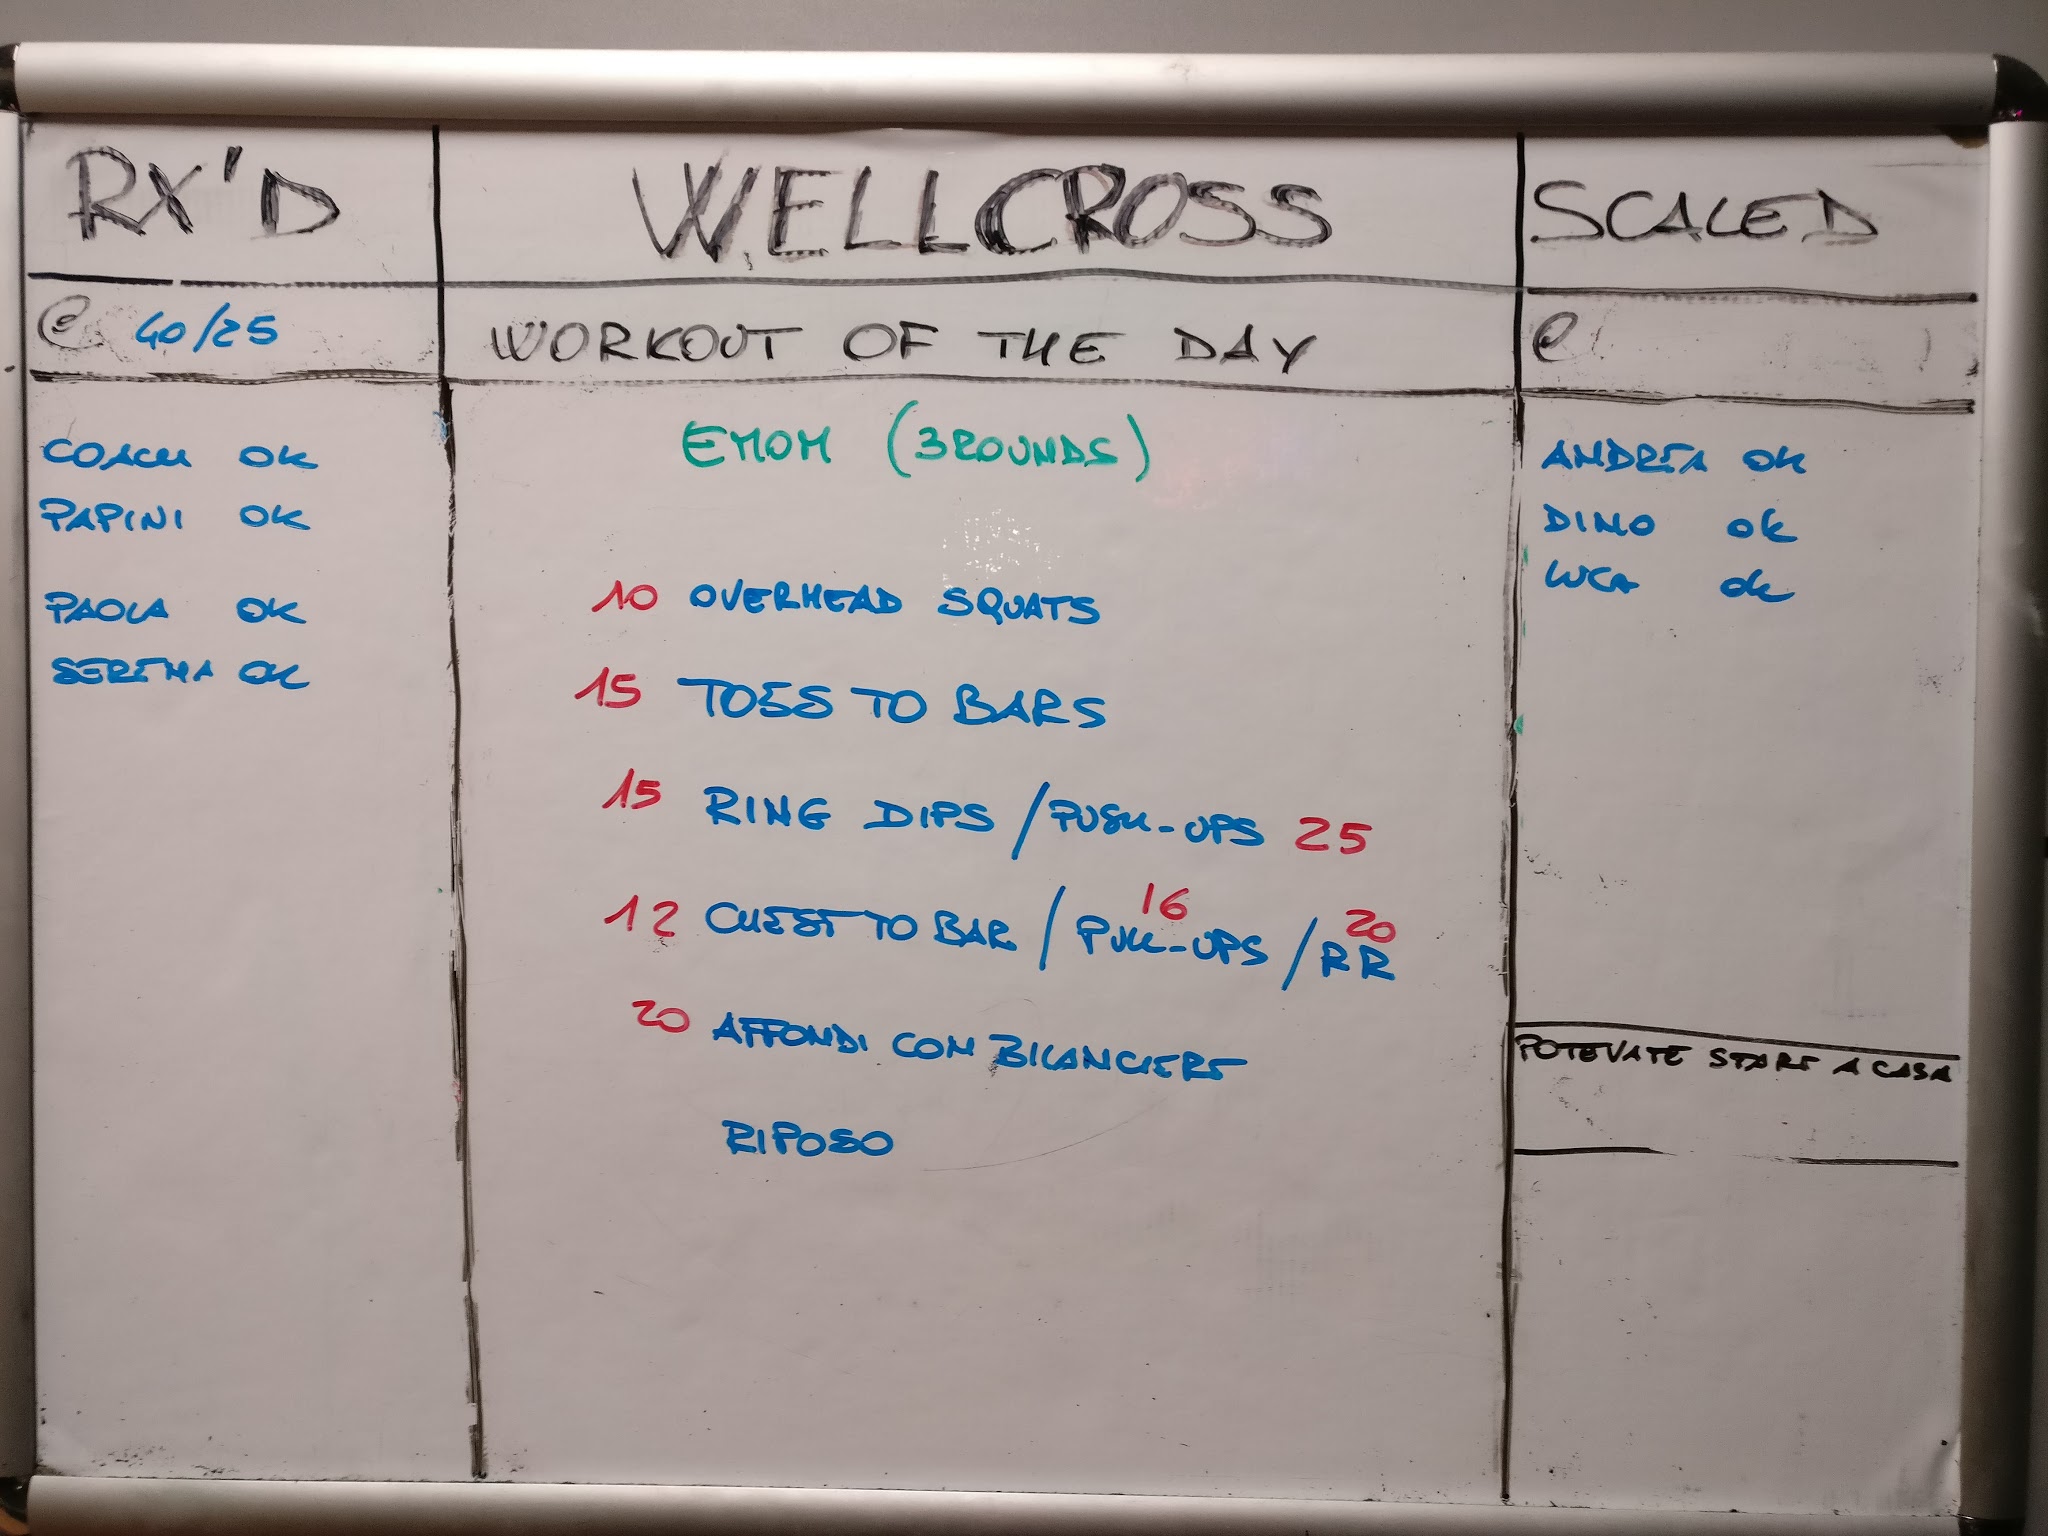 RX'D
@ 40/25
COACH OK
PAPINI OK
PAOLA OK
SERENA OK
WELLCROSS
WORKOUT OF THE DAY
EMOM (3ROUNDS)
10 OVERHEAD SQUATS
15 TOES TO BARS
15 RING DIPS / PUSH-UPS 25
12 CHEST TO BAR / PULL-UPS 16 / RR 20
20 AFFONDI CON BILANCIERE
RIPOSO
SCALED
@
ANDREA OK
DINO OK
LUCA OK
POTEVATE STARE A CASA